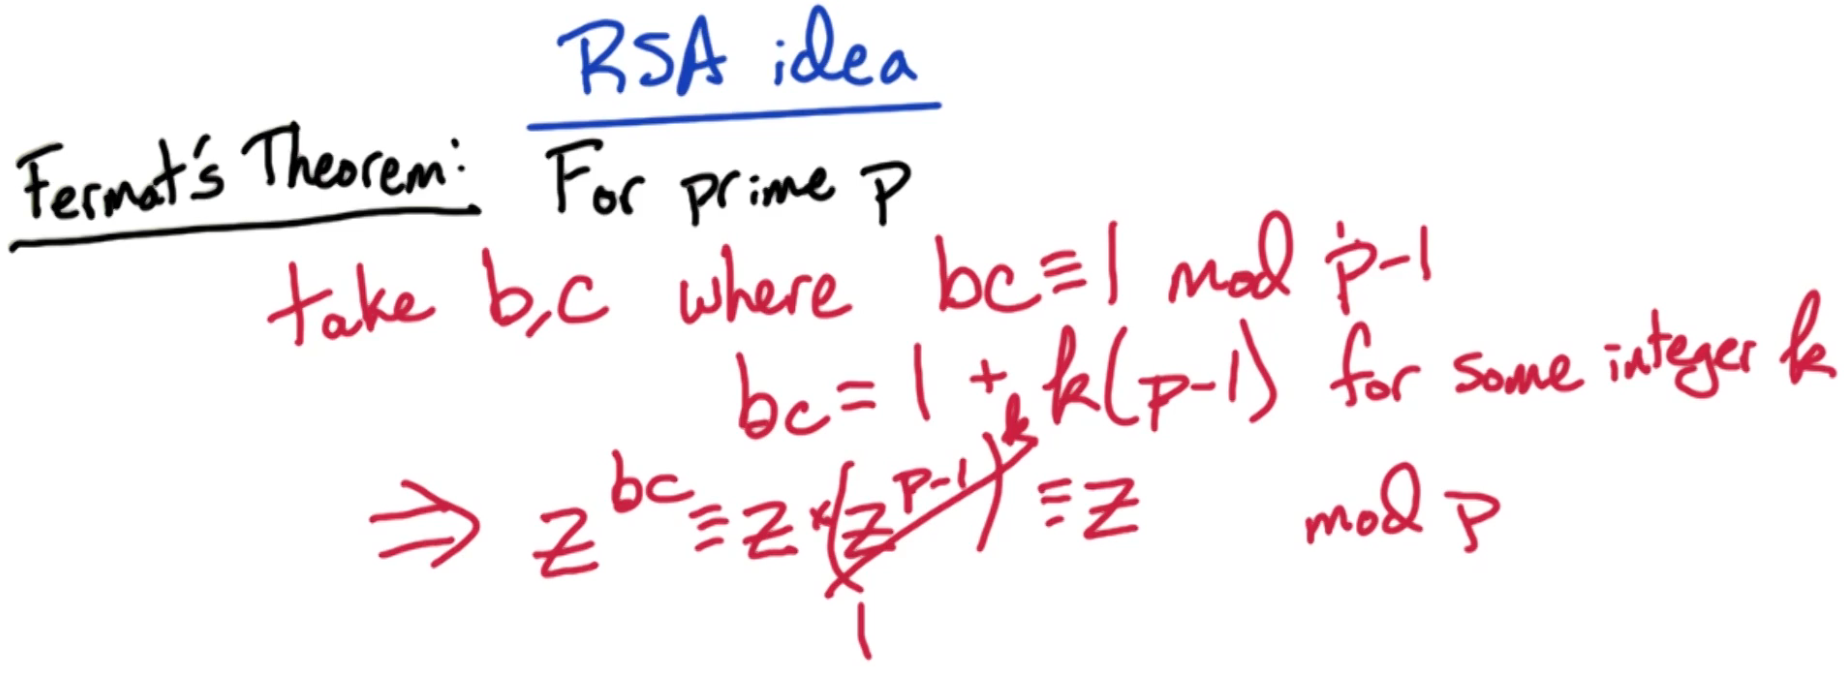 RSA idea
Fermat's Theorem: For prime p
take b,c where bc≡1 mod p-1
bc = 1 + k(p-1) for some integer k
⇒ z^bc ≡ z × (z^p-1)^k ≡ z mod p
1